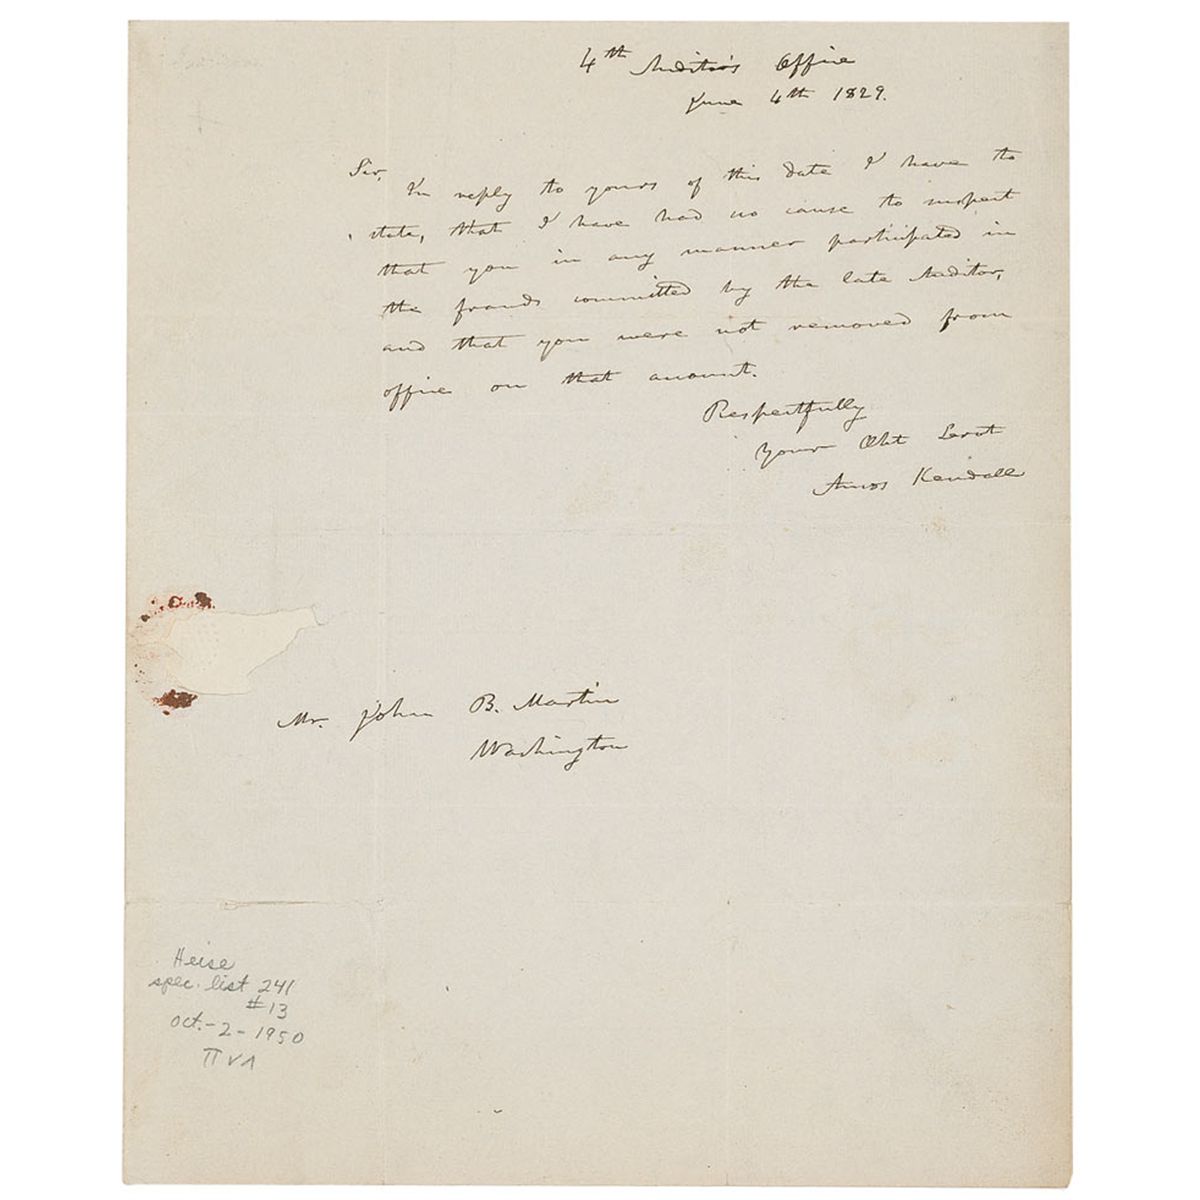 4th Auditor's Office
June 4th 1829.
Sir,
In reply to yours of this date I have to
state, that I have had no cause to suspect
that you in any manner participated in
the frauds committed by the late Auditor,
and that you were not removed from
office on that account.
Respectfully
Your Obt Servt
Amos Kendall
Mr. John B. Martin
Washington
Heise
spec. list 241
#13
Oct.-2-1950